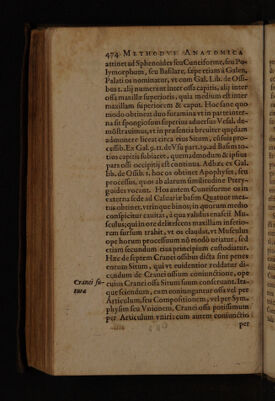 474 METHODVS ANATOMICA
attinet ad Sphenoides seu Cuneiforme, seu Po-
lymorphum, seu Basilare, sæpe etiam à Galen.
Palati os nominatur, vt cum Gal. Lib. de Ossi-
bus 1. alij numerent inter ossa capitis, alij inter
ossa maxillæ superioris, quia medium est inter
maxillam superiorem & caput. Hoc sane quo
modo obtineat duo foramina vt in parte inter-
na sit spongiosum superius aduersus Vesal. de-
mõstrauimus, vt in præsentia breuiter quędam
admonere liceat circa eius Situm, cuiusq; po-
cessib. Ex Gal. 9. 11. de Vsu part. 19. ad Basim to-
tius capitis subiacet, quemadmodum & ipsius
pars ossi occipitij est continua. Adhæc ex Gal.
lib. de Ossib. 1. hoc os obtinet Apophyses, seu
processus, quos ab alarum similitudine Ptery-
goides vocant. Hos autem Cuneiforme os in
externa sede ad Caluariæ basim Quatuor mea-
tus obtinet. vtrinque binos, in quorum medio
conspicitur cauitas, à qua validus enascit Mu-
sculus; qui in ore delitescens maxillam inferio-
rem sursum trahit, vt os claudat, vt Musculus
ope horum processuum nõ modo oriatur, sed
etiam secundum eius principium custodiatur.
Hæc de septem Cranei ossibus dicta sint penes
eorum Situm, qui vt euidentior reddatur di-
cendum de Cranei ossium coniunctione, ope
Cranei su- cuius Cranei ossa Situm suum conseruant. Ita-
tura que sciendum, cum coniungantur ossa vel per
Articulum, seu Compositionem, vel per Sym-
physim seu Vnionem, Cranei ossa potissimum
per Articulum vniri; cum autem coniunctio
per